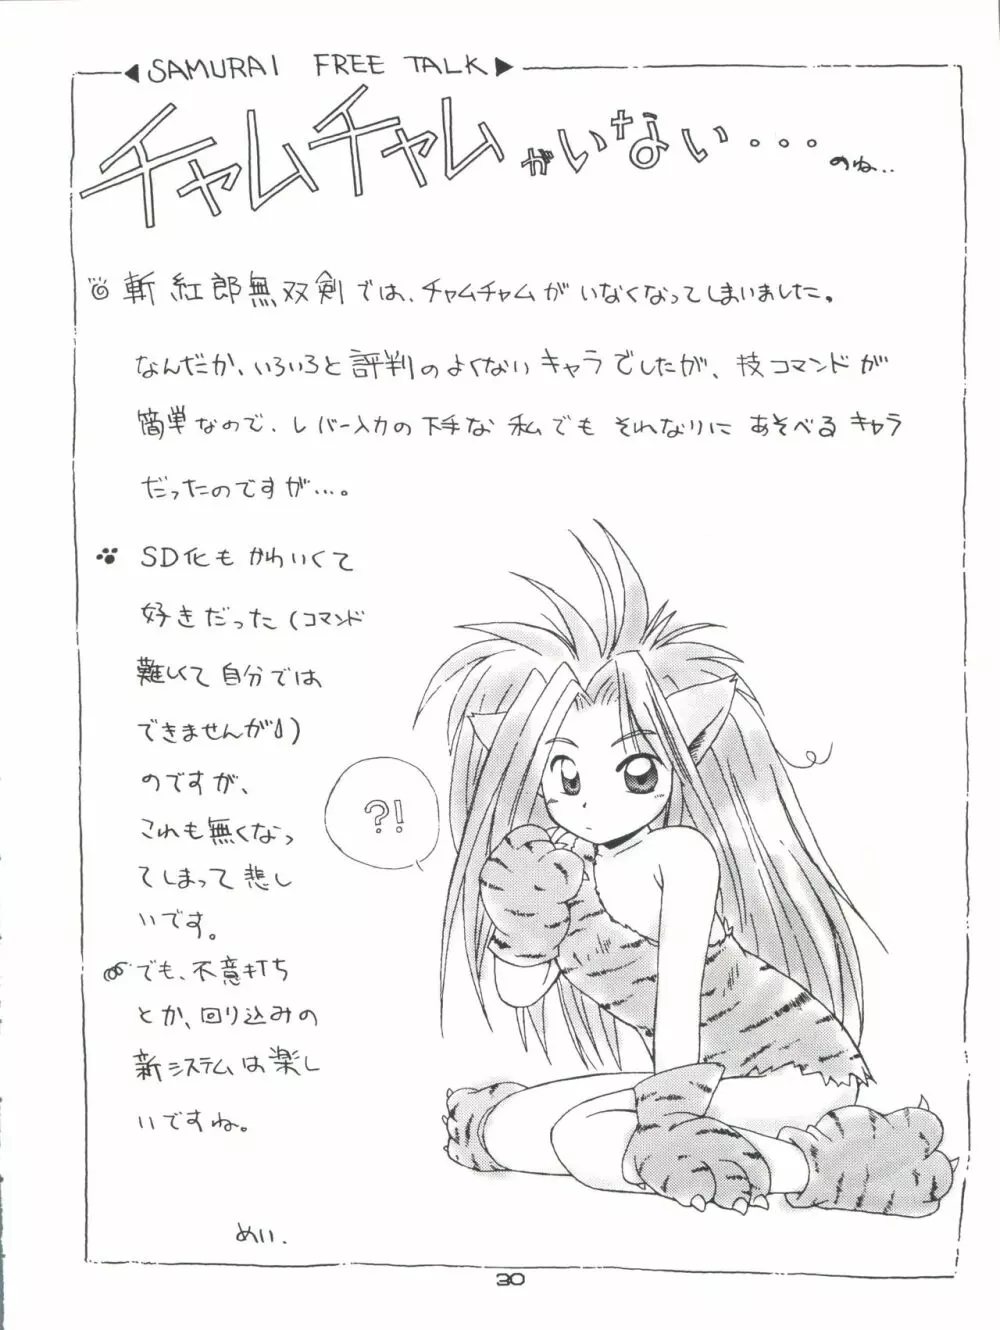 SAMURAI FREE TALK
チャムチャムがいない・・・のね..
斬紅郎無双剣では、チャムチャムがいなくなってしまいました。
なんだか、いろいろと評判のよくないキャラでしたが、技コマンドが
簡単なので、レバー入力の下手な私でもそれなりにあそべるキャラ
だったのですが…。
SD化もかわいくて
好きだった(コマンド
難しくて自分では
できませんが)
のですが、
これも無くなっ
てしまって悲し
いです。
でも、不意打ち
とか、回り込みの
新システムは楽し
いですね。
?!
めい.
30